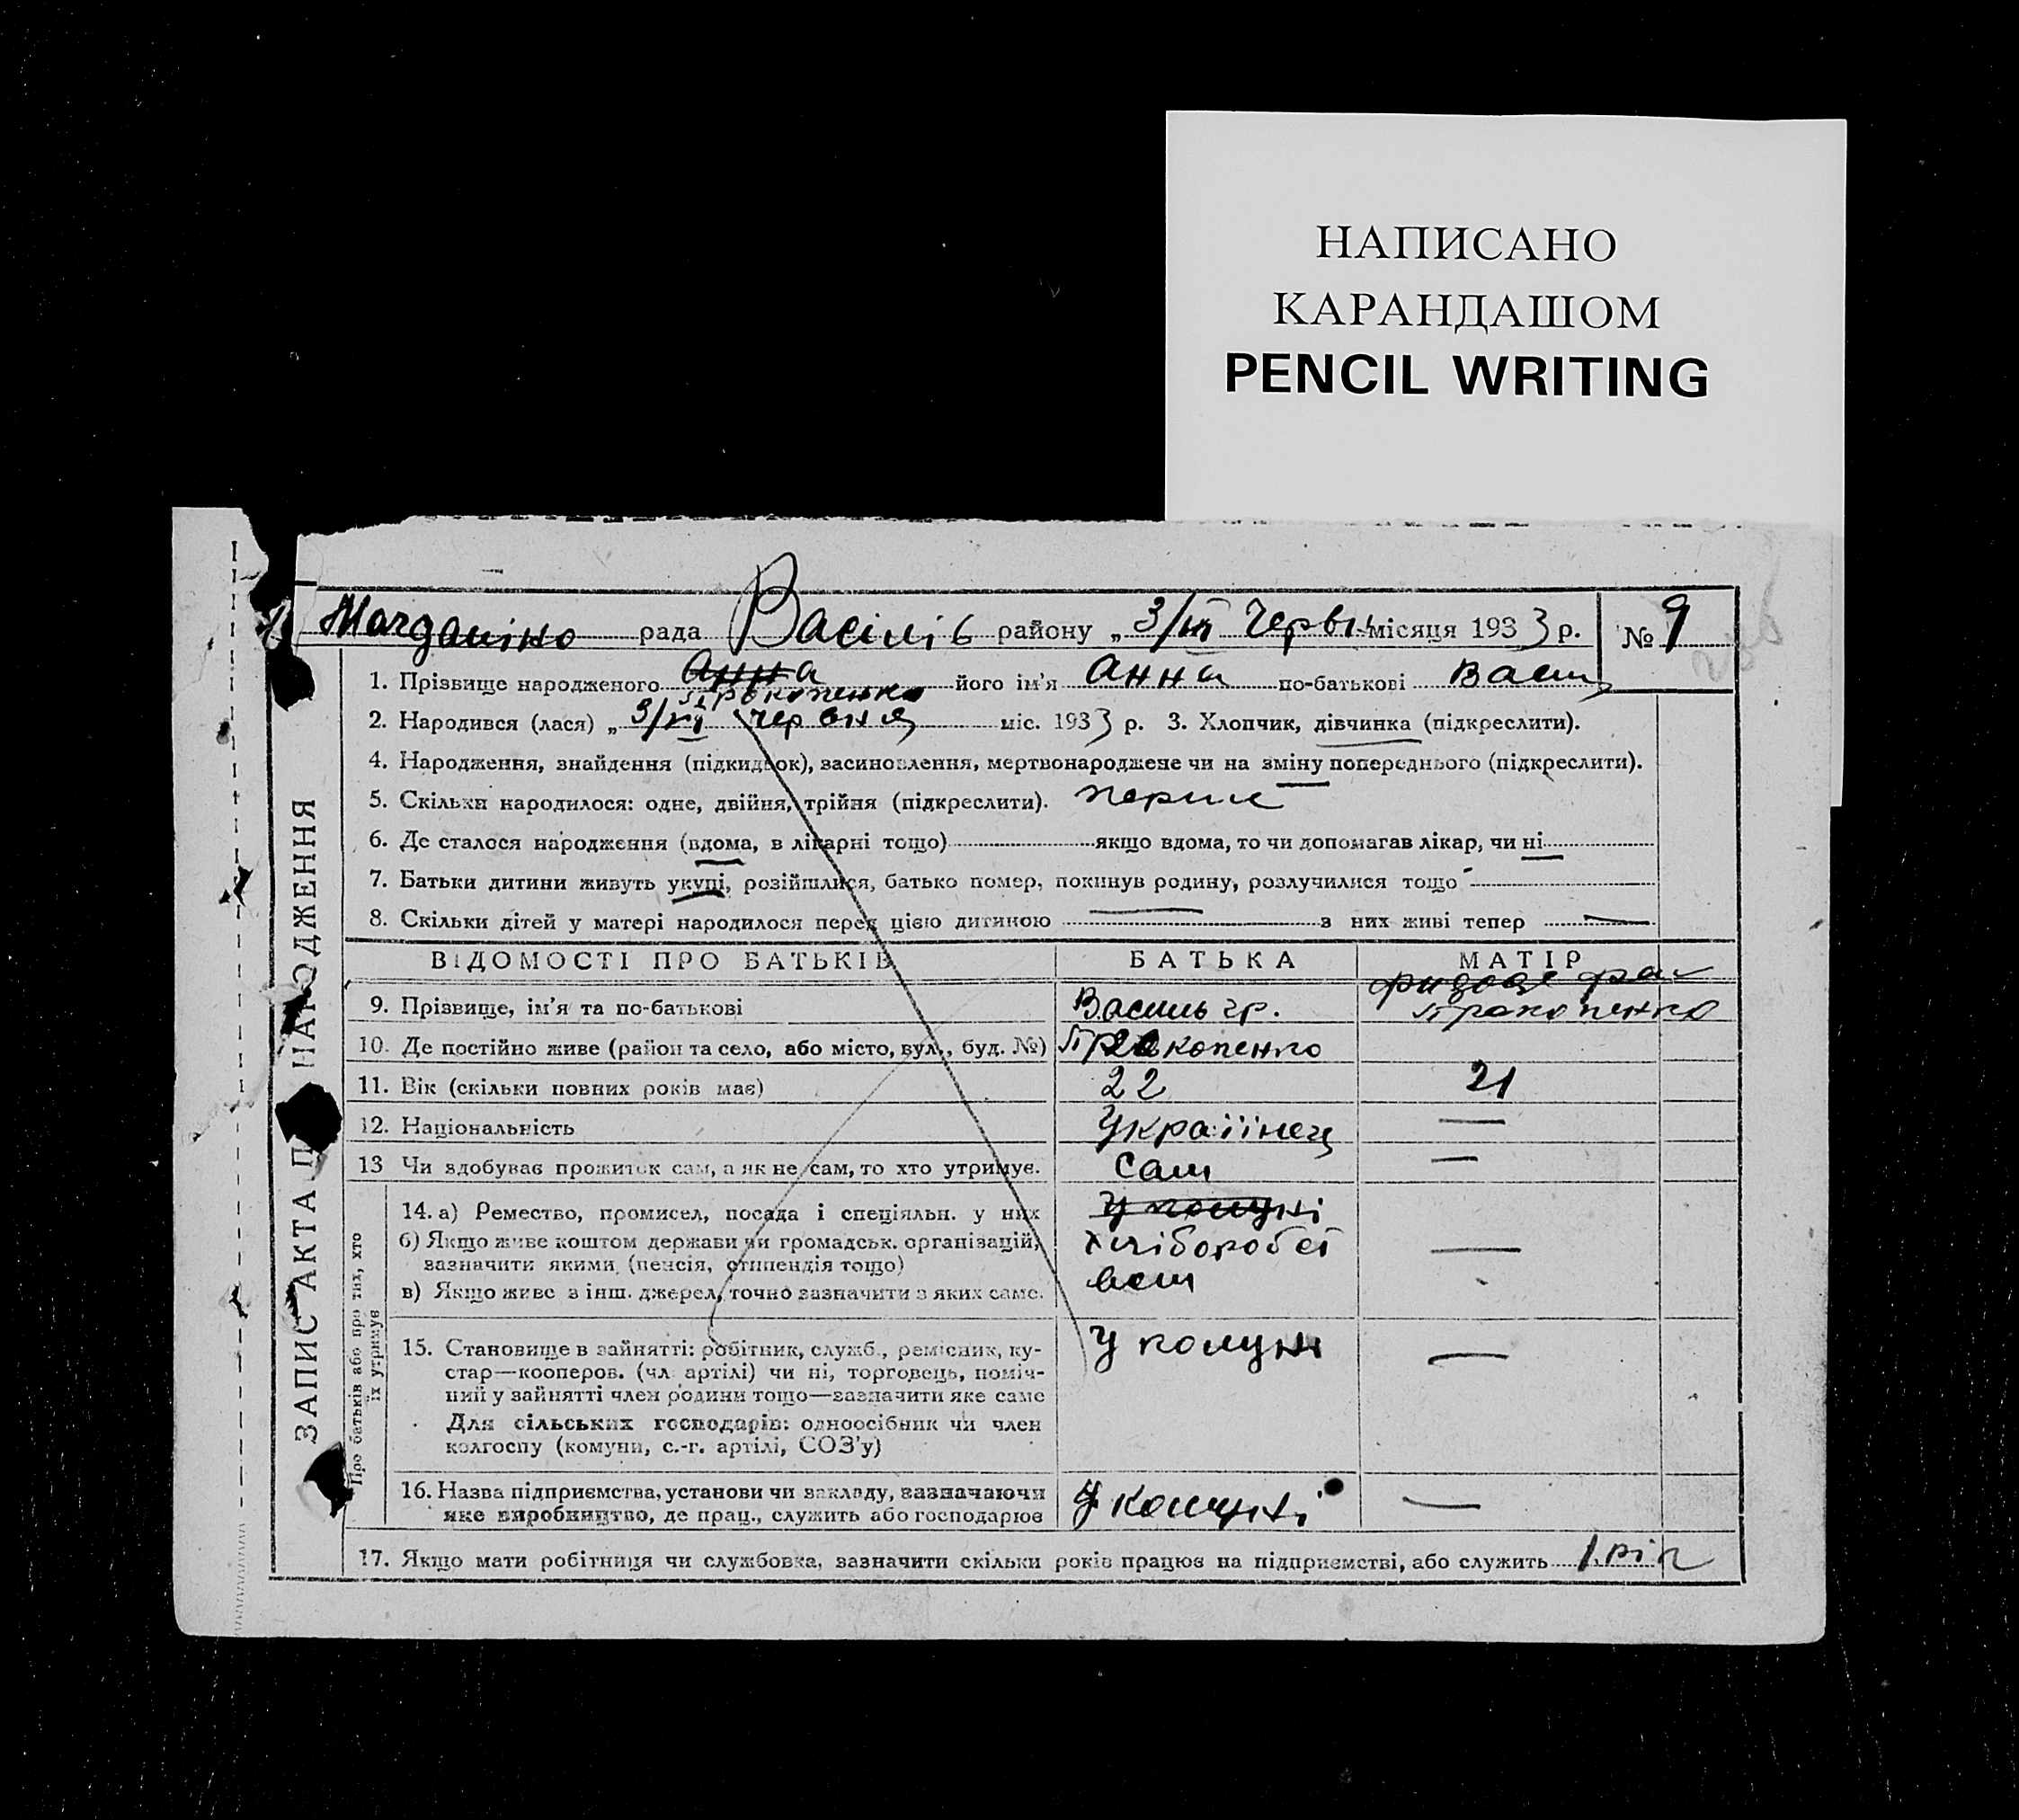 НАПИСАНО
КАРАНДАШОМ
PENCIL WRITING
рада Василів району „ 3/VI Червн місяця 1933 р. № 9
ЗАПИС АКТА П НАРОДЖЕННЯ
1. Прізвище народженого Анна Прокопенко його ім'я Анна по-батькові Васи
2. Народився (лася) „ 3/VI червня міс. 1933 р. 3. Хлопчик, дівчинка (підкреслити).
4. Народження, знайдення (підкидьок), засиновлення, мертвонароджене чи на зміну попереднього (підкреслити).
5. Скільки народилося: одне, двійня, трійня (підкреслити). перше
6. Де сталося народження (вдома, в лікарні тощо) якщо вдома, то чи допомагав лікар, чи ні
7. Батьки дитини живуть укупі, розійшлися, батько помер, покинув родину, розлучилися тощо -
8. Скільки дітей у матері народилося перед цією дитиною — з них живі тепер —
ВІДОМОСТІ ПРО БАТЬКІВ БАТЬКА МАТІР
9. Прізвище, ім'я та по-батькові Василь гр. Прокопенко
10. Де постійно живе (район та село, або місто, вул., буд. №) Прокопенко
11. Вік (скільки повних років має) 22 21
12. Національність Украіінец —
13 Чи здобуває прожиток сам, а як не сам, то хто утримує. Сам —
Про батьків або про тих, хто
їх утримує
14. а) Ремество, промисел, посада і спеціяльн. у них У комуні
б) Якщо живе коштом держави чи громадськ. організацій, хлібороб —
зазначити якими (пенсія, стипендія тощо)
в) Якщо живе з інш. джерел, точно зазначити з яких саме.
15. Становище в зайнятті: робітник, служб., ремісник, ку- У комуні —
стар—кооперов. (чл. артілі) чи ні, торговець, поміч-
ний у зайнятті член родини тощо—зазначити яке саме
Для сільських господарів: одноосібник чи член
колгоспу (комуни, с.-г. артілі, СОЗ'у)
16. Назва підприємства, установи чи закладу, зазначаючи У комуні —
яке виробництво, де прац., служить або господарює
17. Якщо мати робітниця чи службовка, зазначити скільки років працює на підприємстві, або служить 1 рік